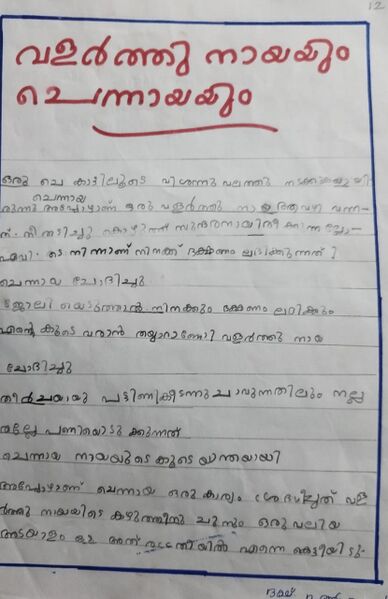 12
വളർത്തു നായയും
ചെന്നായയും
ഒരു ചെ കാട്ടിലൂടെ വിശന്നു വലഞ്ഞു
ചെന്നായ
രുന്നു അപ്പോഴാണ് ഒരു വളർത്തു നാ വന്ന
ത്. നീ തടിച്ചു കൊഴുത്ത് സുന്ദരനായി
എവി ടെ നിന്നാണ് നിനക്ക് ഭക്ഷണം ലഭിക്കുന്നത്
ചെന്നായ ചോദിച്ചു
ജോലി യെടുത്താൽ നിനക്കും ഭക്ഷണം ലഭിക്കും
എന്റെ കൂടെ വരാൻ തയ്യാറാണോ വളർത്തു നായ
ചോദിച്ചു
തീർച്ചയായു പട്ടിണികിടന്നു ചാവുന്നതിലും നല്ല
തല്ലേ പണിയെടു ക്കുന്നത്
ചെന്നായ നായയുടെ കൂടെ യാത്രയായി
അപ്പോഴാണ് ചെന്നായ ഒരു കാര്യം ശ്രദ്ധിച്ചത് വള
ർത്തു നായയിടെ കഴുത്തിനു ചുറ്റും ഒരു വലിയ
അടയാളം അത് രാത്രിയിൽ എന്നെ കെട്ടിയിടു